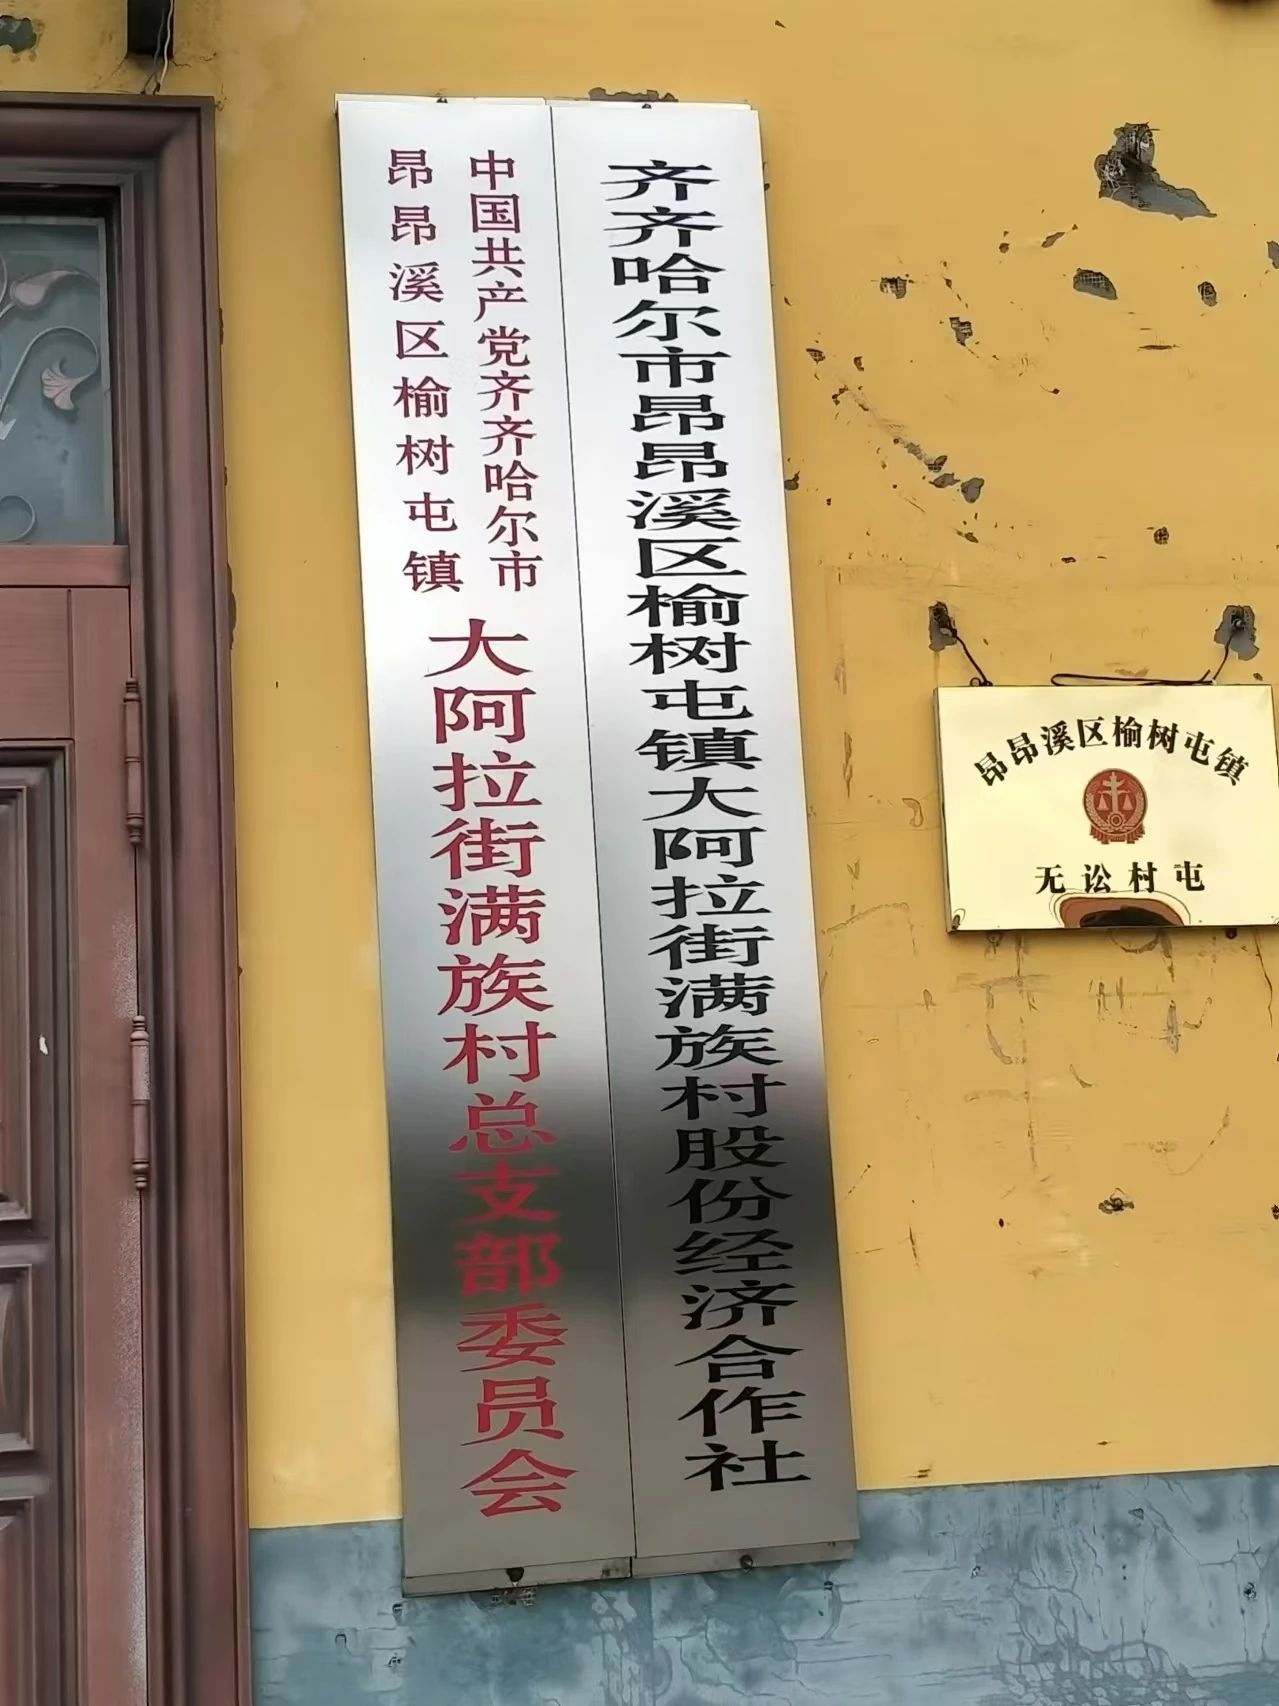 中国共产党齐齐哈尔市
昂昂溪区榆树屯镇
大阿拉街满族村总支部委员会
齐齐哈尔市昂昂溪区榆树屯镇大阿拉街满族村股份经济合作社
昂昂溪区榆树屯镇
无讼村屯